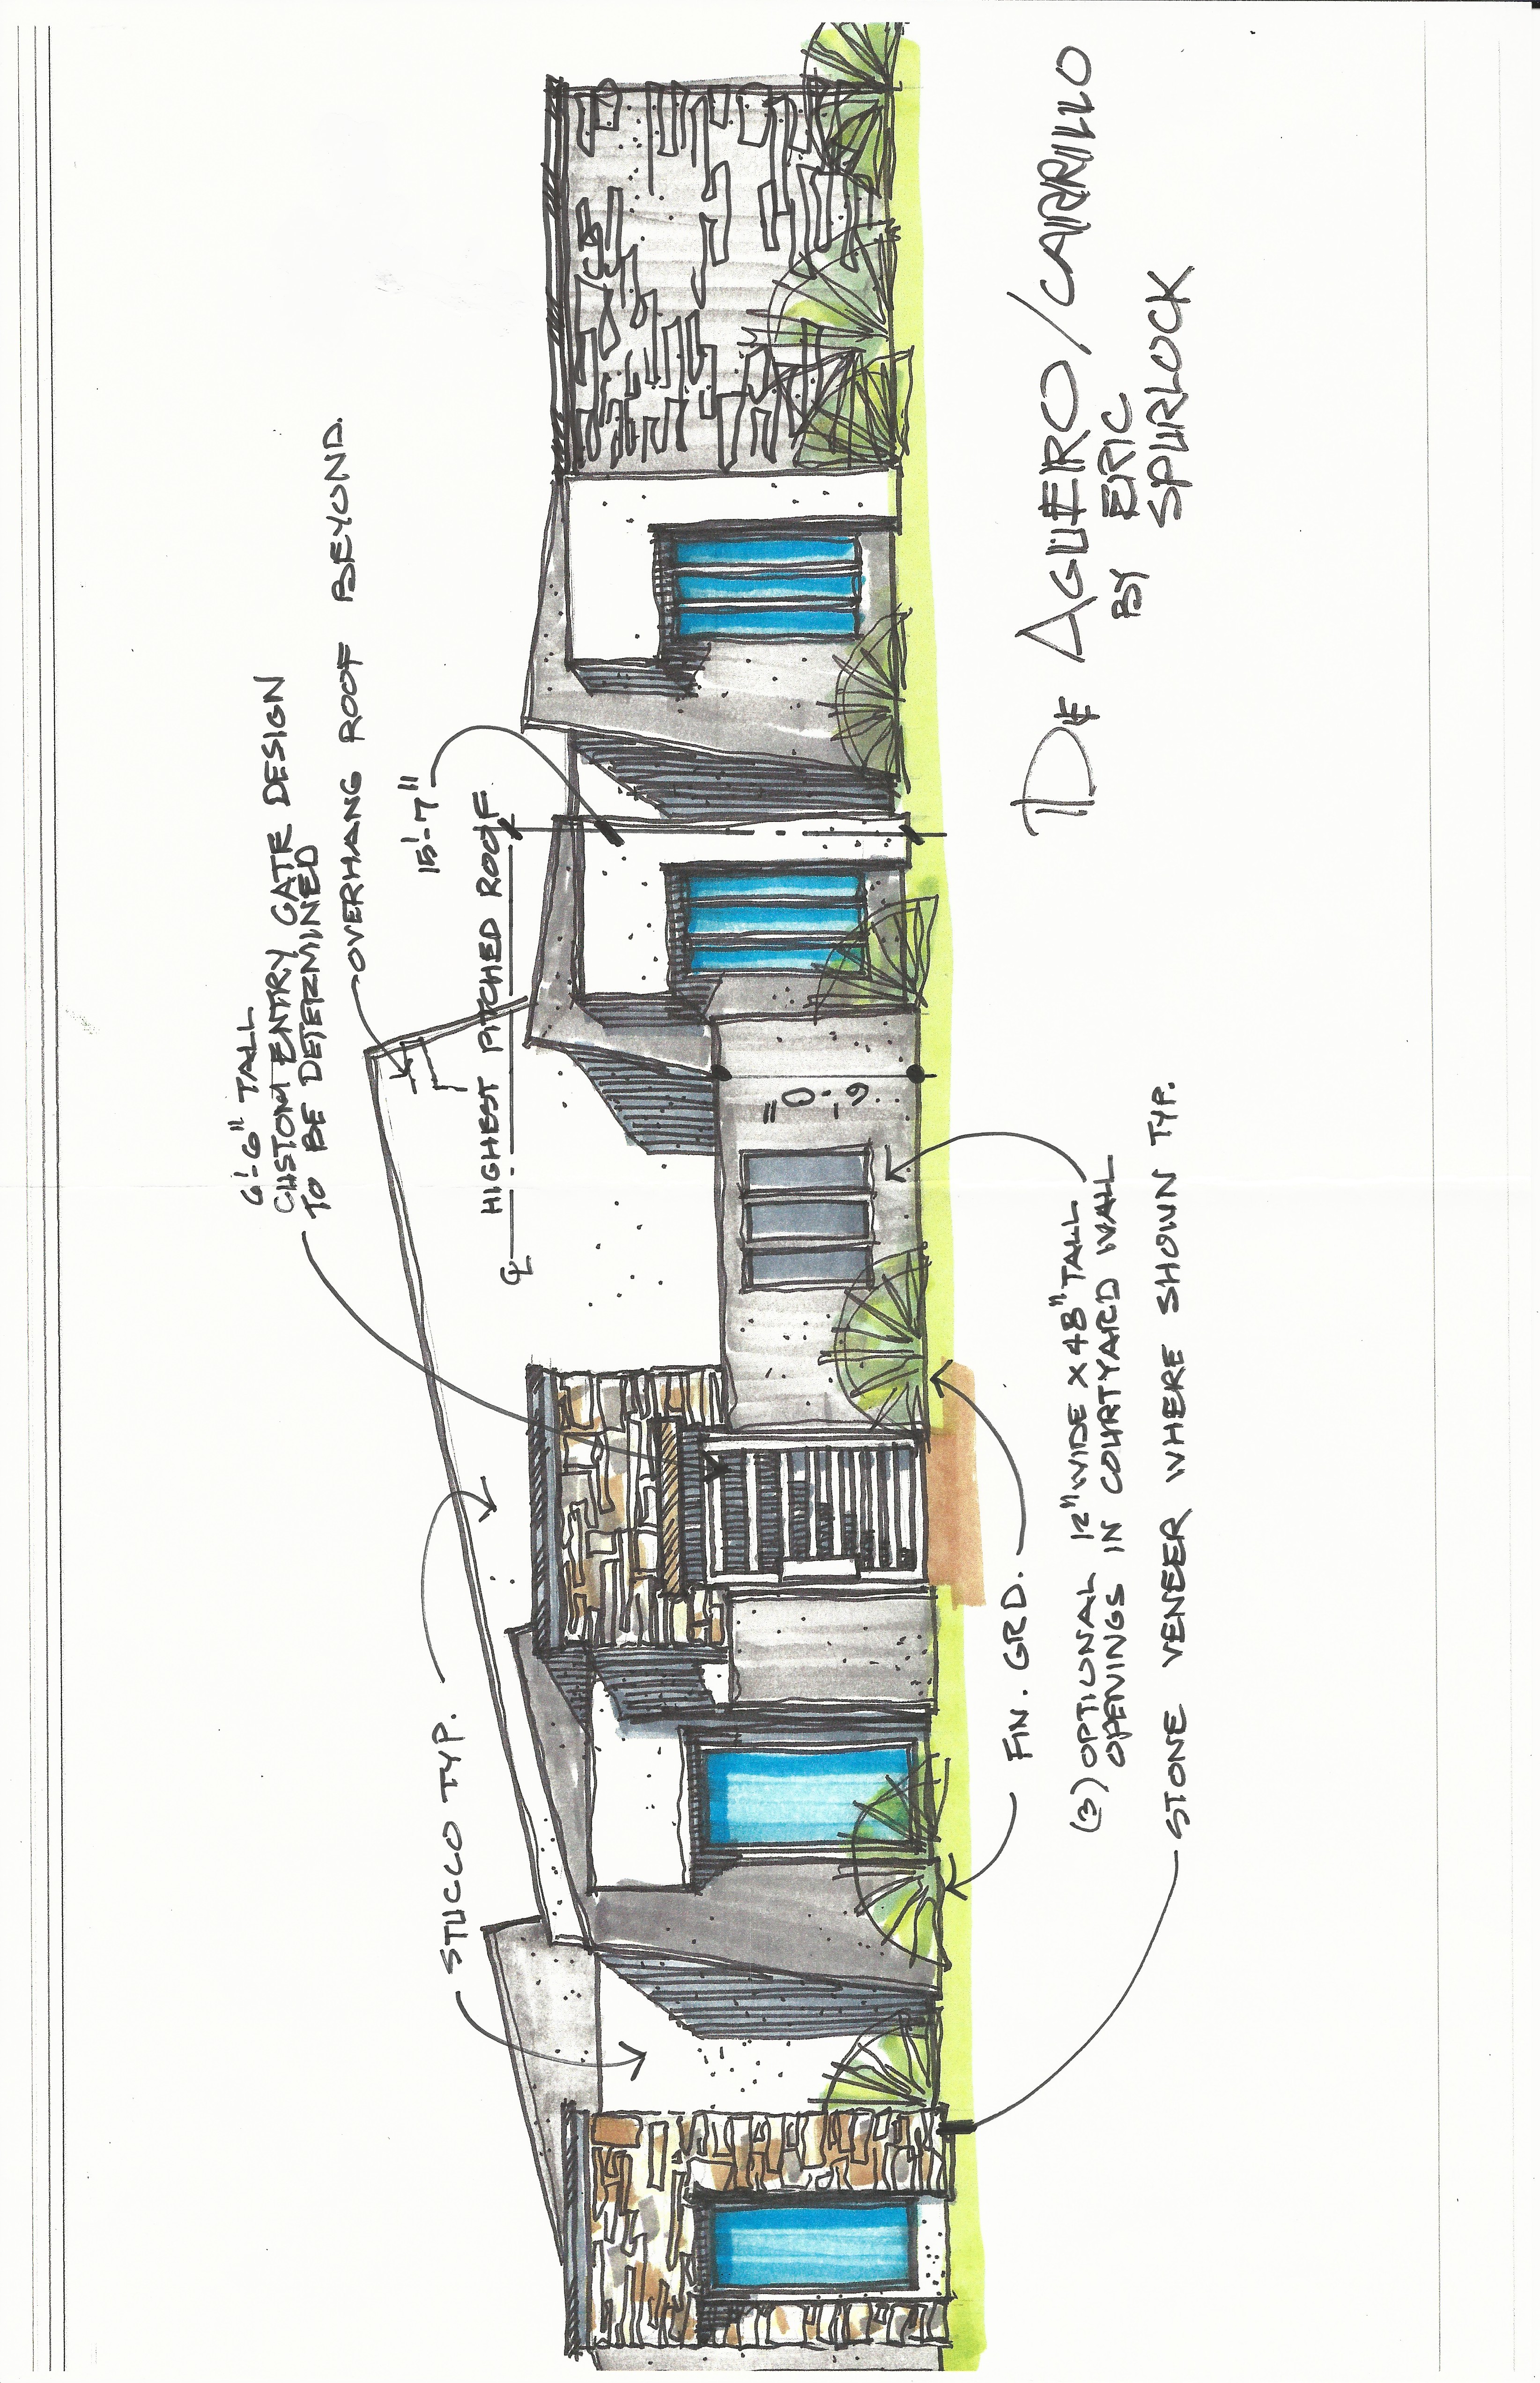 6'-6" TALL
CUSTOM ENTRY GATE DESIGN
TO BE DETERMINED
OVERHANG ROOF BEYOND.
15'-7"
HIGHEST PITCHED ROOF
℄
STUCCO TYP.
6'-0"
FIN. GRD.
(3) OPTIONAL 12" WIDE X 48" TALL
OPENINGS IN COURTYARD WALL
STONE VENEER WHERE SHOWN TYP.
DE AGUERO/CARRILLO
BY ERIC
SPURLOCK